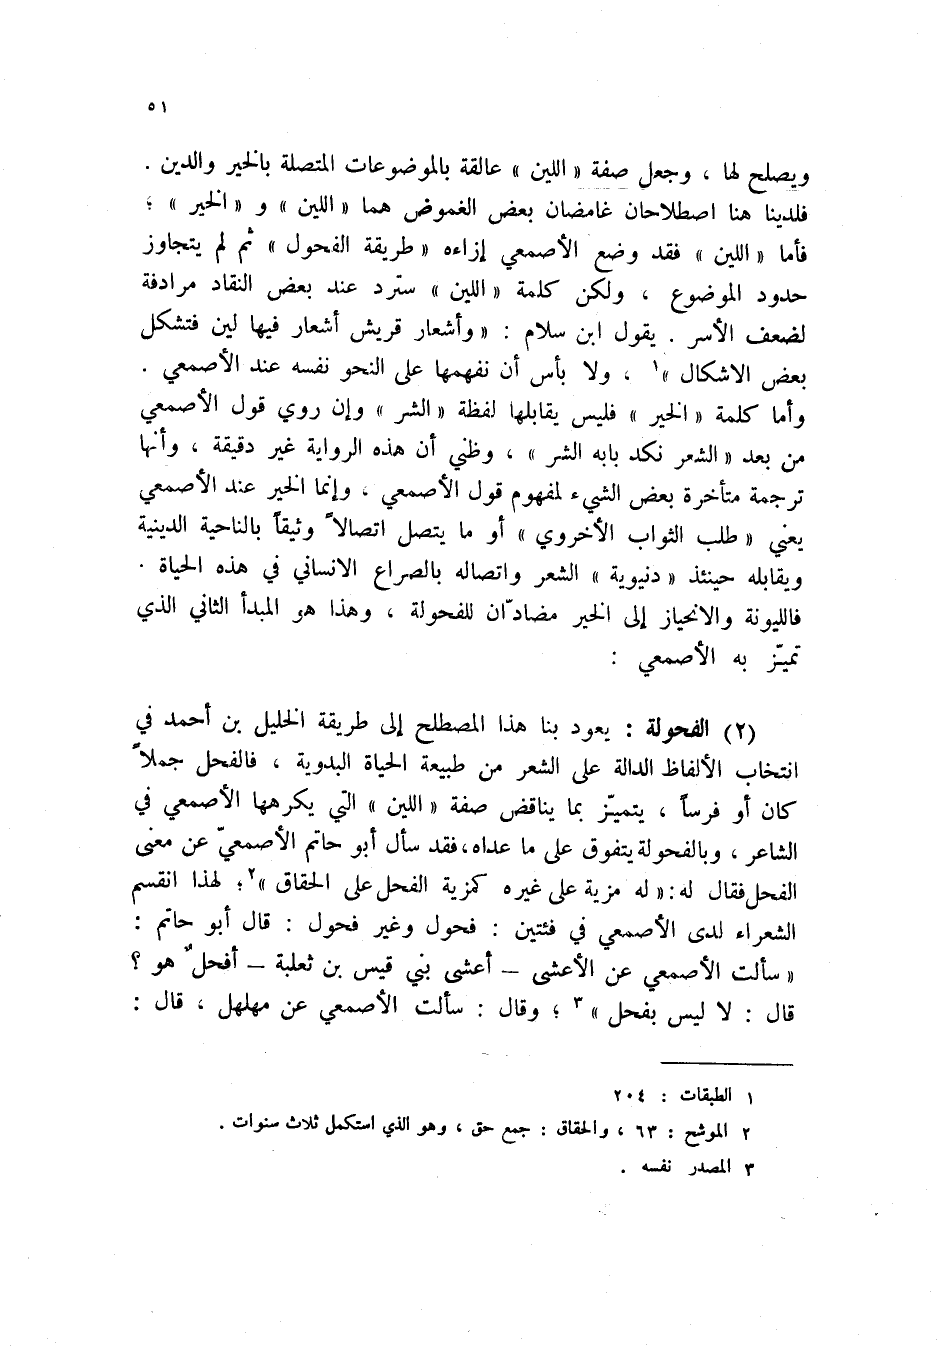 ٥١
ويصلح لها ، وجعل صفة « اللين » عالقة بالموضوعات المتصلة بالخير والدين .
فلدينا هنا اصطلاحان غامضان بعض الغموض هما « اللين » و « الخير » ؛
فأما « اللين » فقد وضع الأصمعي إزاءه « طريقة الفحول » ثم لم يتجاوز
حدود الموضوع ، ولكن كلمة « اللين » سترد عند بعض النقاد مرادفة
لضعف الأسر . يقول ابن سلام : « وأشعار قريش أشعار فيها لين فتشكل
بعض الاشكال »١ ، ولا بأس أن نفهمها على النحو نفسه عند الأصمعي .
وأما كلمة « الخير » فليس يقابلها لفظة « الشر » وإن روي قول الأصمعي
من بعد « الشعر نكد بابه الشر » ، وظني أن هذه الرواية غير دقيقة ، وأنها
ترجمة متأخرة بعض الشيء لمفهوم قول الأصمعي ، وإنما الخير عند الأصمعي
يعني « طلب الثواب الأخروي » أو ما يتصل اتصالاً وثيقاً بالناحية الدينية
ويقابله حينئذ « دنيوية » الشعر واتصاله بالصراع الانساني في هذه الحياة .
فالليونة والانحياز إلى الخير مضادّان للفحولة ، وهذا هو المبدأ الثاني الذي
تميّز به الأصمعي :
(٢) الفحولة : يعود بنا هذا المصطلح إلى طريقة الخليل بن أحمد في
انتخاب الألفاظ الدالة على الشعر من طبيعة الحياة البدوية ، فالفحل جملاً
كان أو فرساً ، يتميّز بما يناقض صفة « اللين » التي يكرهها الأصمعي في
الشاعر ، وبالفحولة يتفوق على ما عداه، فقد سأل أبو حاتم الأصمعيّ عن معنى
الفحل فقال له : « له مزية على غيره كمزية الفحل على الحقاق »٢ ؛ لهذا انقسم
الشعراء لدى الأصمعي في فئتين : فحول وغير فحول : قال أبو حاتم :
« سألت الأصمعي عن الأعشى – أعشى بني قيس بن ثعلبة – أفحلٌ هو ؟
قال : لا ليس بفحل » ٣ ؛ وقال : سألت الأصمعي عن مهلهل ، قال :
١ الطبقات : ٢٠٤
٢ الموشح : ٦٣ ، والحقاق : جمع حق ، وهو الذي استكمل ثلاث سنوات .
٣ المصدر نفسه .